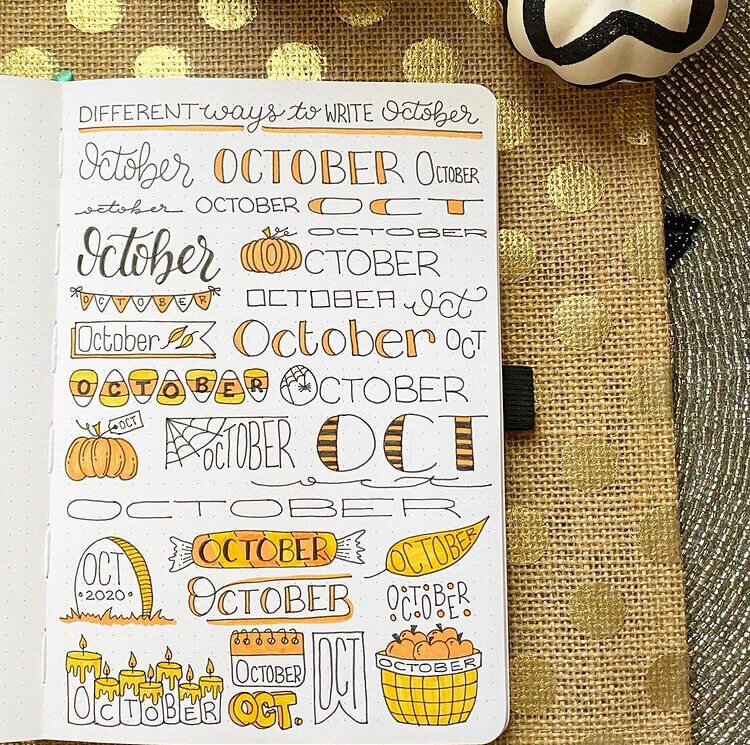 DIFFERENT ways to WRITE October
October OCTOBER OCTOBER
october OCTOBER OCT
OCTOBER
October OCTOBER
OCTOBER OCTOBER Oct
October October OCT
OCTOBER OCTOBER
OCT OCTOBER OCT
oct
OCTOBER
OCT OCTOBER OCTOBER
2020
OCTOBER OCTOBER
OCTOBER OCT OCTOBER
OCTOBER OCT.